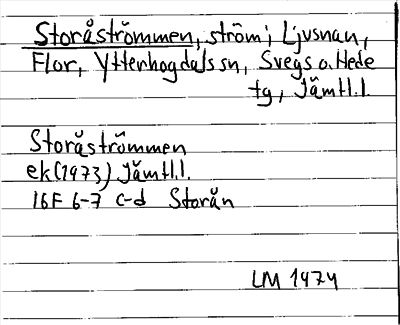 Storåströmmen, ström i Ljusnan,
Flor, Ytterhogdals sn, Svegs o. Hede
tg, Jämtl.l.
Storåströmmen
ek(1973) Jämtl.l.
16F 6-7 c-d Storån
LM 1974